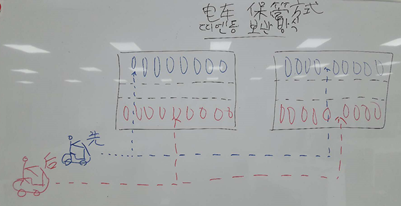 电车 保管方式
띠엔동 보관 방식
先
后